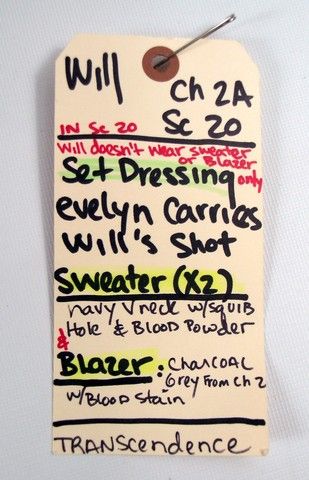 Will
Ch 2A
Sc 20
IN Sc 20
Will doesn't wear sweater
or Blazer
Set Dressing only
Evelyn Carries
Will's Shot
Sweater (X2)
navy V neck w/squib
Hole & Blood Powder
&
Blazer: CHARCOAL
Grey From Ch 2
w/Blood Stain
TRANScendence